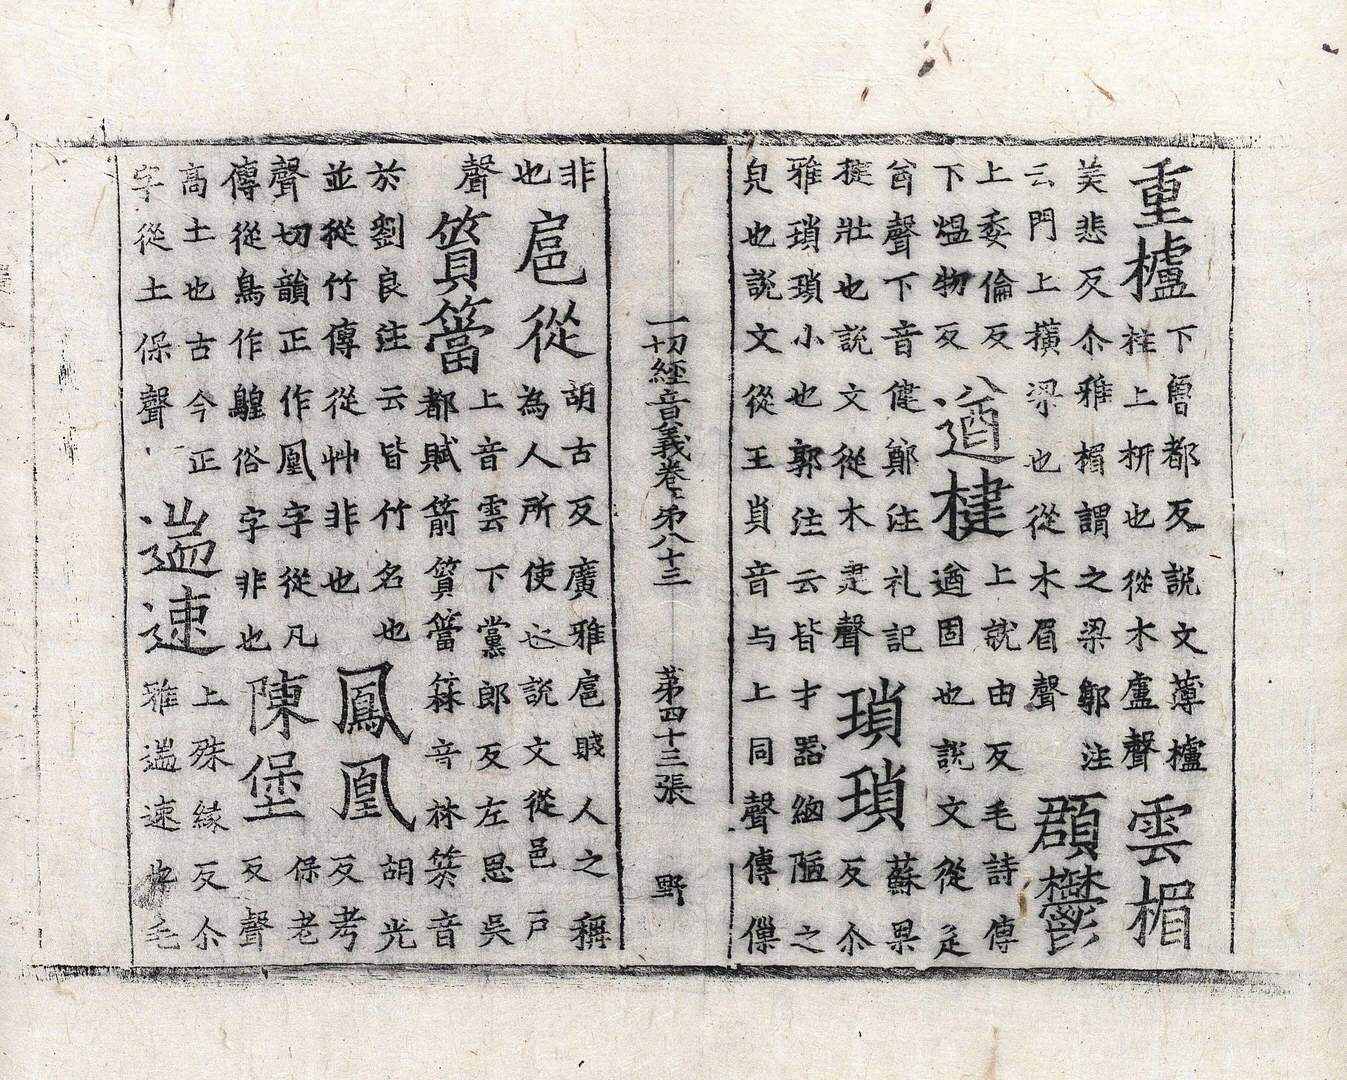 重櫨
下魯都反說文薄櫨
柱上枅也從木盧聲
雲楣
美悲反尒雅楣謂之梁郭注
云門上橫梁也從木眉聲
頵鬱
上委倫反
下熅物反
遒楗
上就由反毛詩傳
遒固也說文從辵
酋聲下音健鄭注礼記
楗壯也說文從木建聲
瑣瑣
蘇果
反尒
雅瑣瑣小也郭注云皆才器細陋之
皃也說文從王貟音与上同聲傳
一切經音義卷第八十三 第四十三張 野
非
也
扈從
胡古反廣雅扈賤人之稱
為人所使也說文從邑戶
聲
篔簹
上音雲下黨郎反左思吳
都賦箭篔簹箖音林䇢音
於劉良注云皆竹名也
並從竹傳從艸非也
鳳凰
胡光
反考
聲切韻正作凰字從凡
傳從鳥作鰉俗字非也
陳堡
保老
反聲
高土也古今正
字從土保聲
遄速
上殊緣反尒
雅遄速也毛